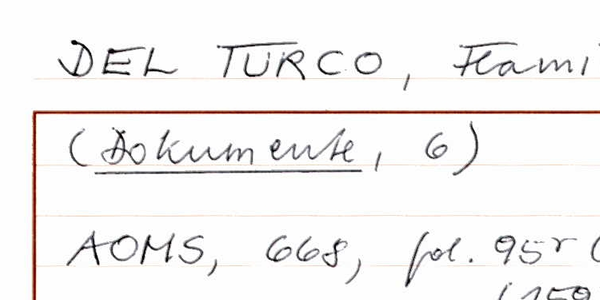 DEL TURCO, Flami
(Dokumente, 6)
AOMS, 668, fol. 95r (
(159